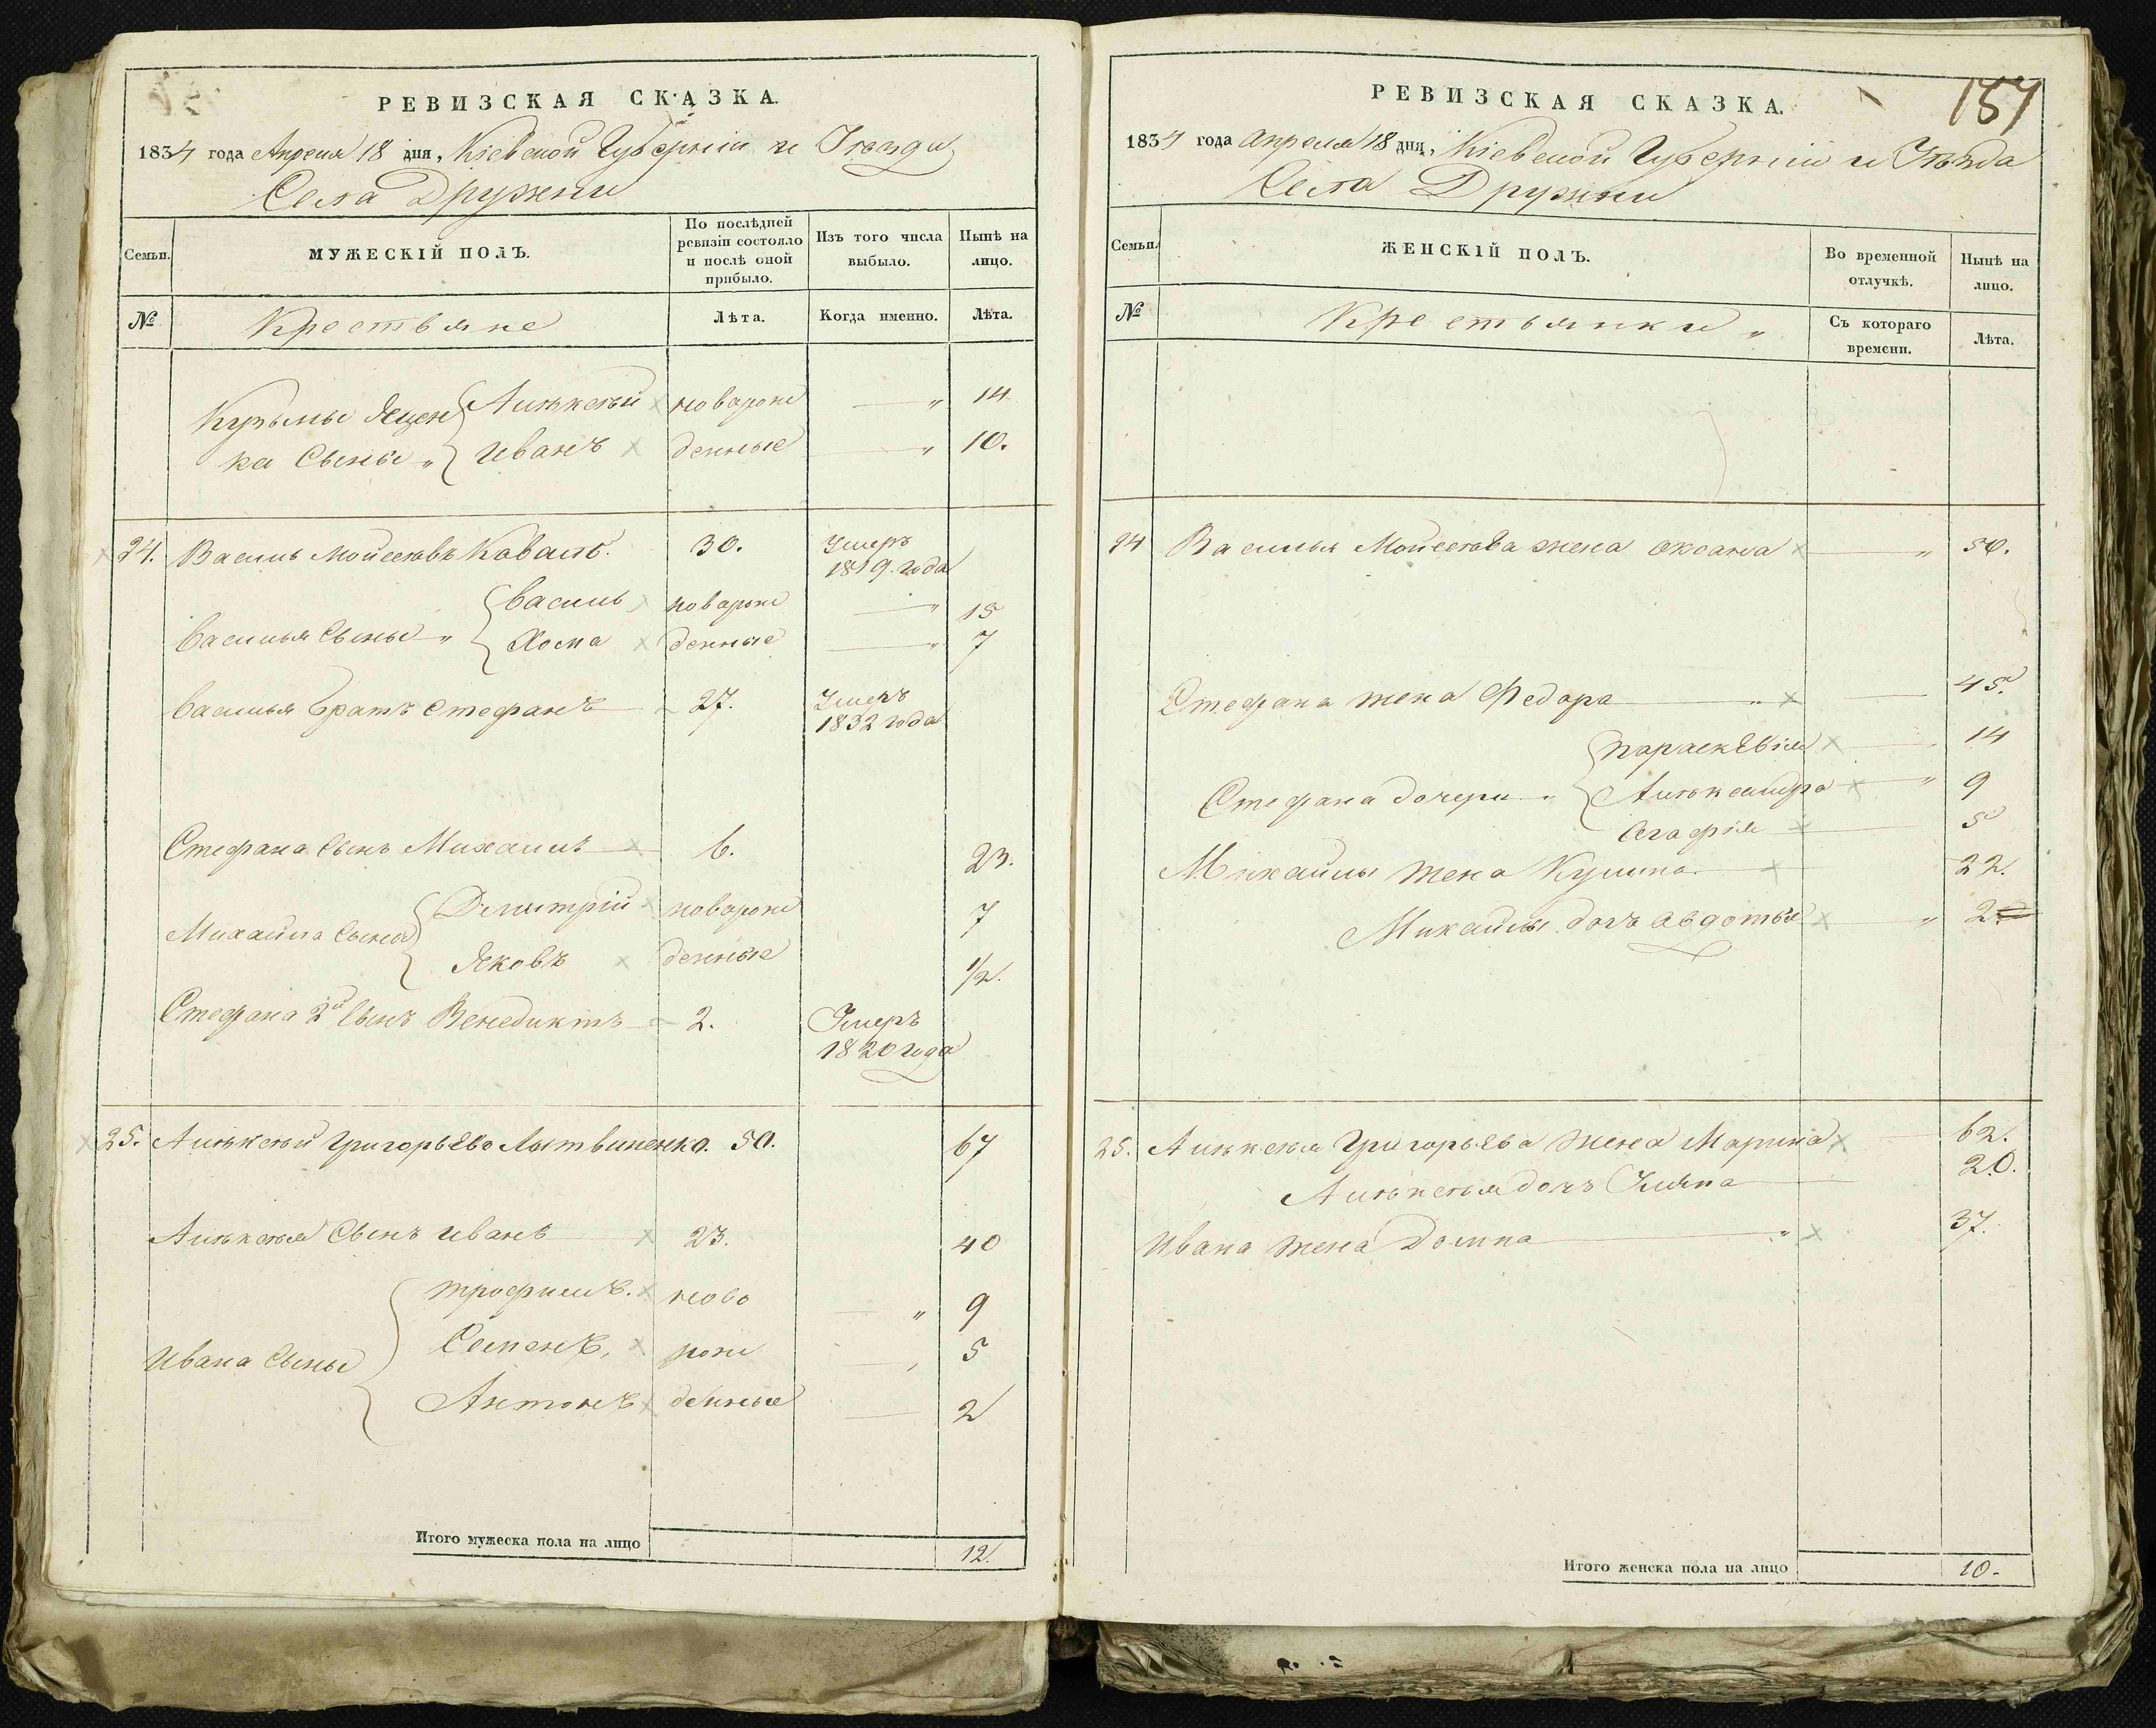 РЕВИЗСКАЯ СКАЗКА.
1834 года Апреля 18 дня, Кіевской Губерніи и Уезда
Села Дружни
Семьи.
МУЖЕСКІЙ ПОЛЪ.
По послѣдней ревизіи состояло и послѣ оной прибыло.
Изъ того числа выбыло.
Нынѣ на лицо.
№
Крестьяне
Лѣта.
Когда именно.
Лѣта.
Кузьмы Яцен { Алѣксѣй новорож — " 14
ка Сыны " { Иванъ денные — " 10.
24. Василь Мойсеѣвъ Коваль. 30. Умеръ
1819. года
{ Василь новорож — " 15
Василья Сыны " { Хома денные — " 7
Василья Братъ Стефанъ 27. Умеръ
1832 года
Стефана Сынъ Михаилъ 6. 23.
{ Дмитрій новорож 7
Михаила Сыны { Яковъ денные 1/2.
Стефана 2й Сынъ Венедиктъ 2. Умеръ
1820 года
25. Алѣксѣй Григорьево Лытвиненко. 50. 67
Алѣксѣя Сынъ Иванъ 23. 40
{ Трофимъ. ново — " 9
Ивана Сыны { Семенъ, рож 5
{ Антонъ денные — 2
Итого мужеска пола на лицо 12.
157
РЕВИЗСКАЯ СКАЗКА.
1834 года Апреля 18 дня, Кіевской Губерніи и Уѣзда
Села Дружни
Семьи.
ЖЕНСКІЙ ПОЛЪ.
Во временной отлучкѣ.
Нынѣ на лицо.
№
Крестьянки "
Съ котораго времени.
Лѣта.
24 Василья Мойсеѣва жена Оксана — " 50.
Стефана жена Федора — " 45.
{ Параскевія 14
Стефана дочери " { Алѣксандра — " 9
{ Агафія 5
Михайлы жена Кулына 22.
Михайлы дочъ Авдотья " 2
25. Алѣксѣя Григорьева жена Марина 62.
Алѣксѣя дочъ Уляна 20.
Ивана жена Домна — " 37.
Итого женска пола на лицо 10.